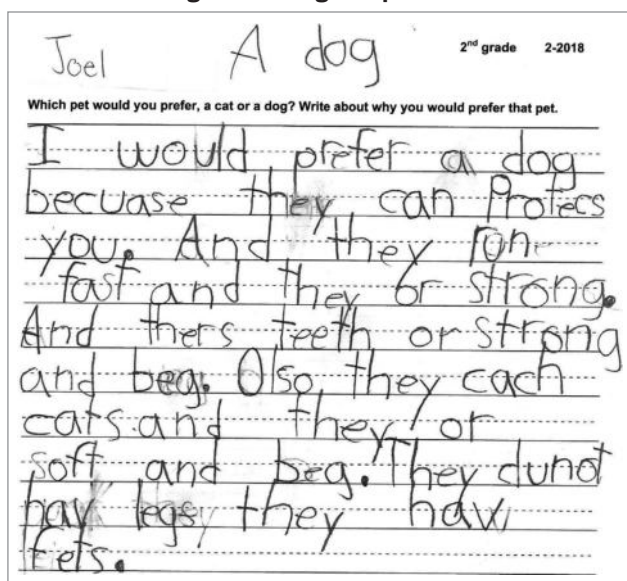 Joel A dog 2nd grade 2-2018
Which pet would you prefer, a cat or a dog? Write about why you would prefer that pet.
I would prefer a dog
becuase they can Protecs
you. And they run
fast and they or strong.
And thers teeth or strong
and beg. Olso they cach
cats and they or
soft and beg. They dunot
hav legs they hav
feets.